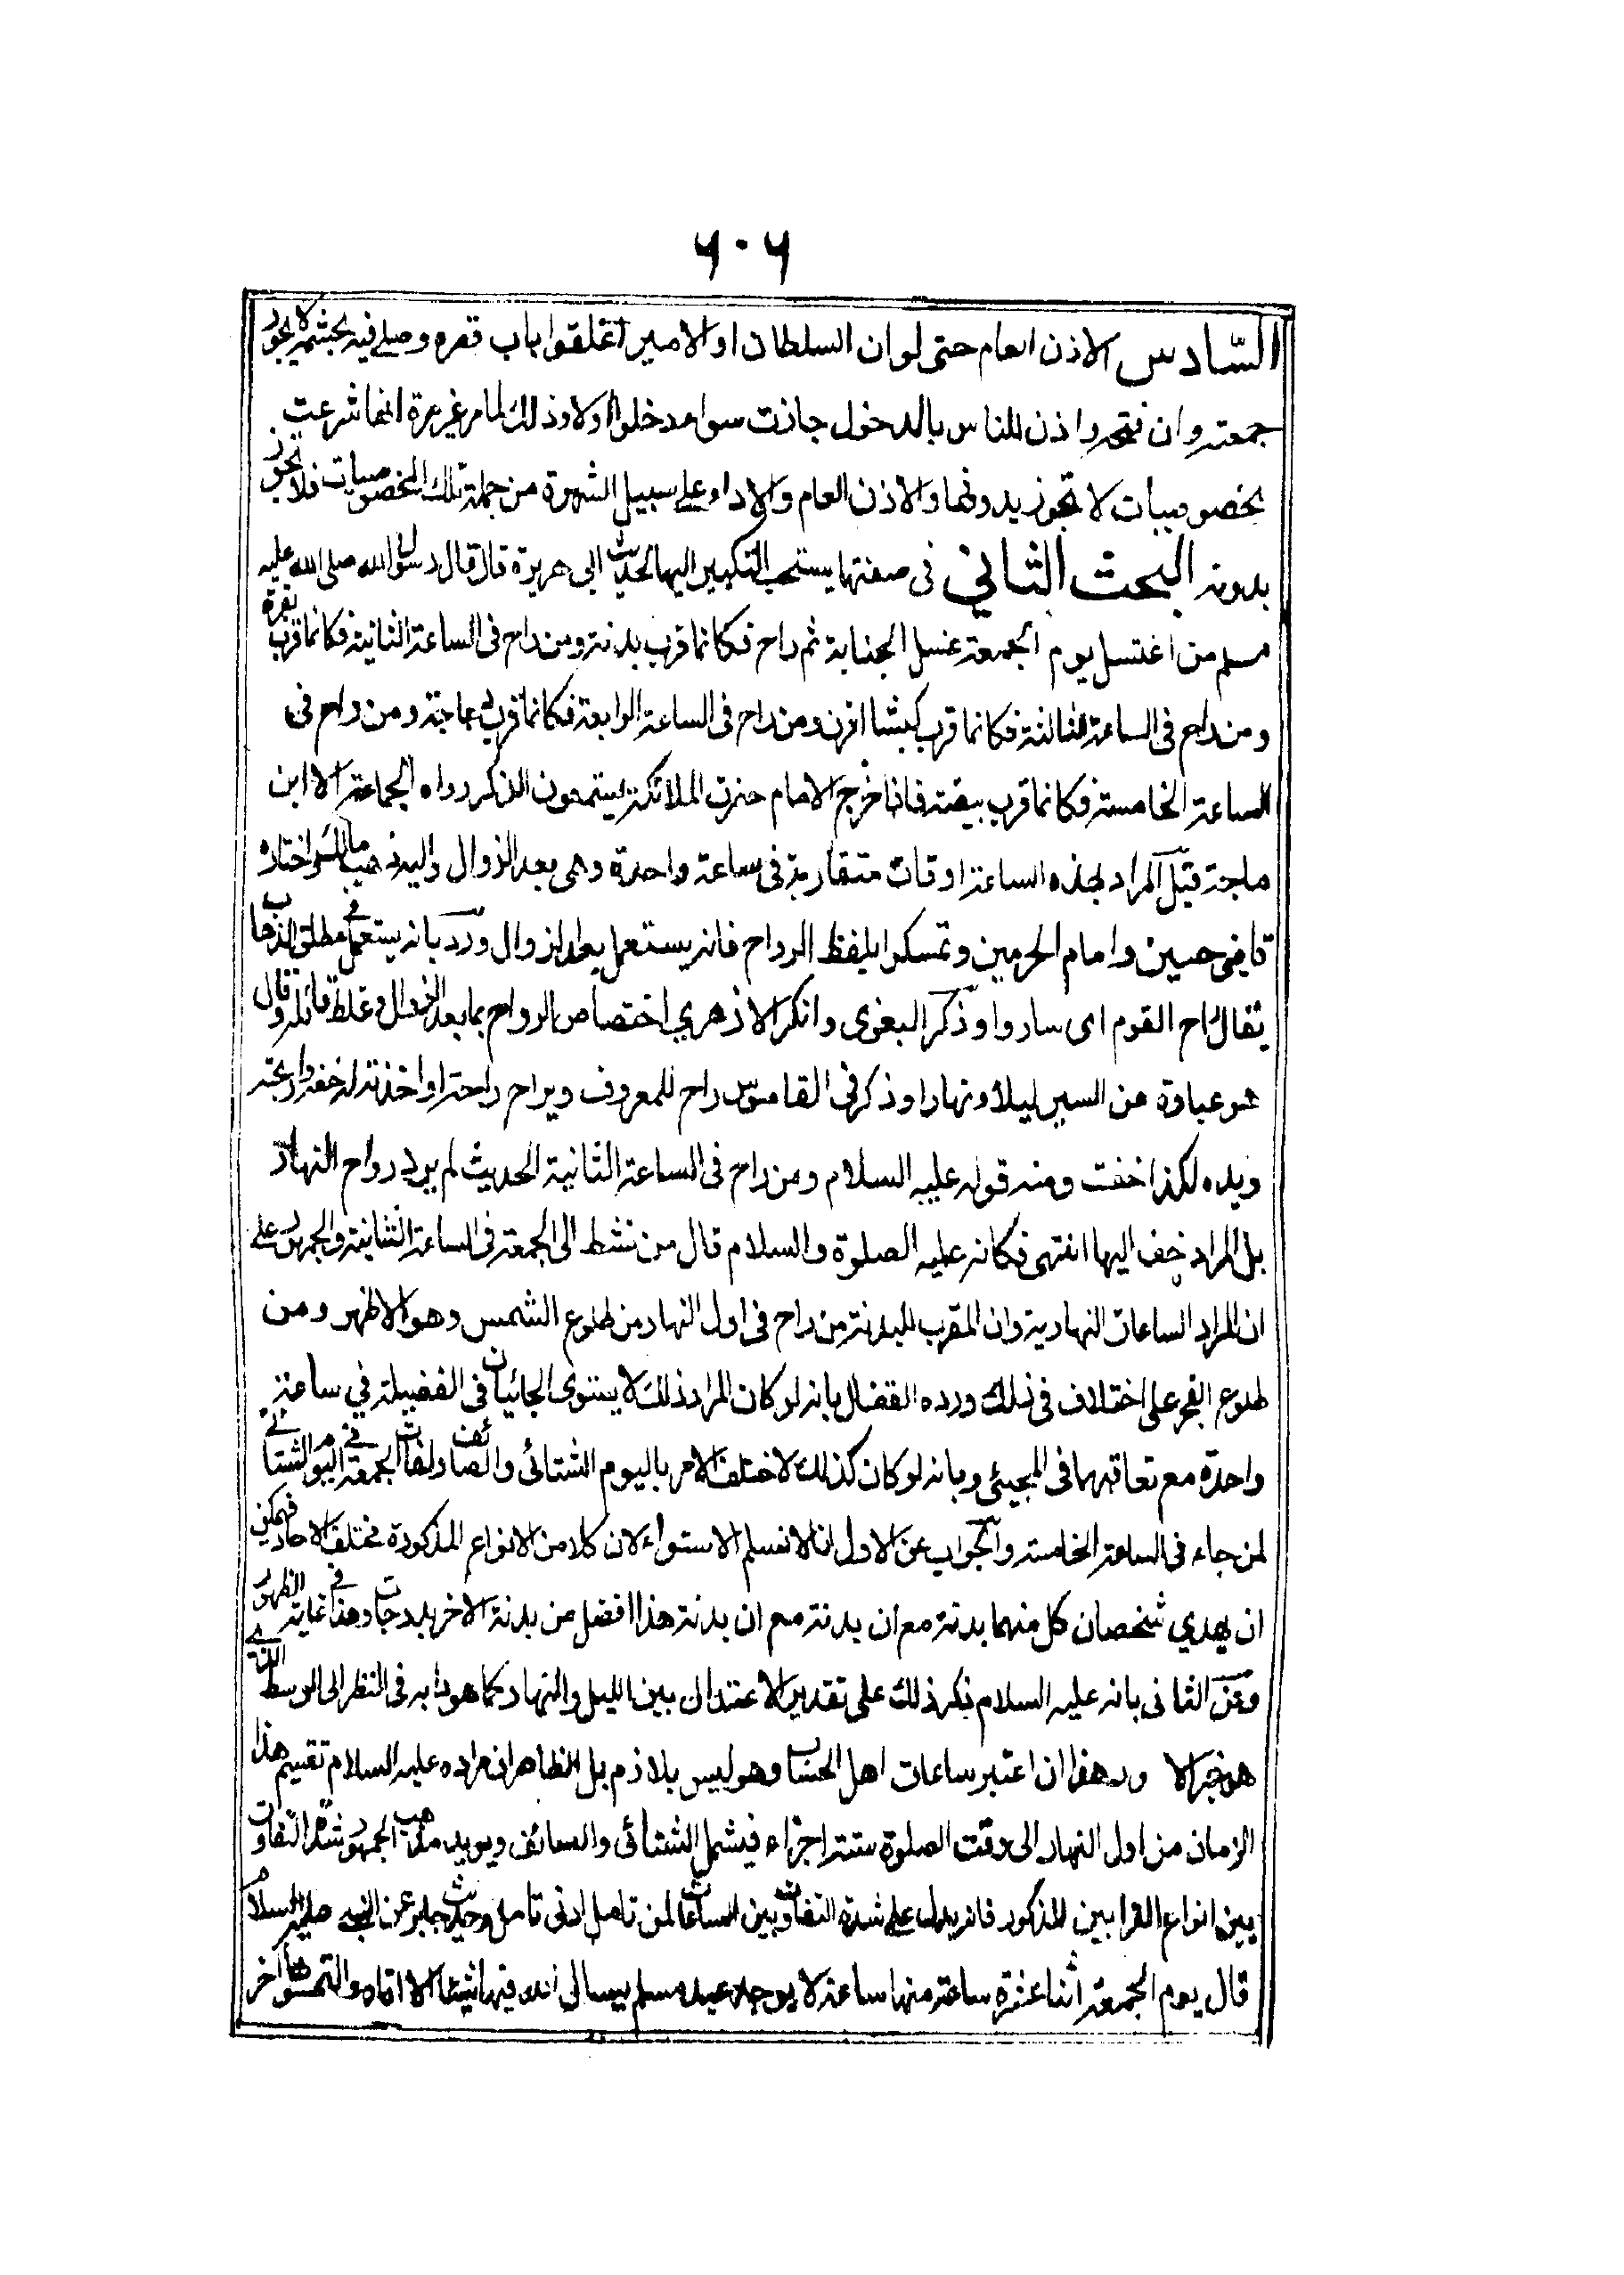 ٦٠٦
السّادس الاذن العام حتى لو ان السلطان او الامير اغلقوا باب قصره وصلى فيه بحشمه لا يجوز
جمعته وان فتحه واذن للناس بالدخول جازت سواء دخلوا اولا وذلك لما مر غير مرة انها شرعت
بخصوصيات لا تجوز بدونها والاذن العام والاداء على سبيل الشهرة من جملة تلك الخصوصيات فلا تجوز
بدونه البحث الثاني فى صفتها يستحب التكبير اليها لحديث ابي هريرة قال قال رسول الله صلى الله عليه
وسلم من اغتسل يوم الجمعة غسل الجنابة ثم راح فكانما قرب بدنة ومن راح فى الساعة الثانية فكانما قرب بقرة
ومن راح فى الساعة الثالثة فكانما قرب كبشا اقرن ومن راح فى الساعة الرابعة فكانما قرب دجاجة ومن راح فى
الساعة الخامسة فكانما قرب بيضة فاذا خرج الامام حضرت الملائكة يستمعون الذكر رواه الجماعة الا ابن
ماجة قيل المراد بهذه الساعة اوقات متقاربة فى ساعة واحدة وهى بعد الزوال واليه ذهب مالك واختاره
قاضى حسين وامام الحرمين وتمسكوا بلفظ الرواح فانه يستعمل بعد الزوال ورد بانه يستعمل فى مطلق الذهاب
يقال راح القوم اى ساروا وذكر البغوى وانكر الازهري اختصاص الرواح بما بعد الزوال وغلط قائله وقال
هو عبارة عن السير ليلا ونهارا وذكر فى القاموس راح للمعروف ويراح راحة اى اخذته له خفة واريحية
ويده لكذا خفت ومنه قوله عليه السلام ومن راح فى الساعة الثانية الحديث لم يرد رواح النهار
بل المراد خف اليها انتهى فكانه عليه الصلوة والسلام قال من نشط الى الجمعة فى الساعة الثانية والجمهور على
ان المراد الساعات النهارية وان المقرب للبدنة من راح فى اول النهار من طلوع الشمس وهو الاظهر ومن
طلوع الفجر على اختلاف فى ذلك ورده القفال بانه لو كان المراد ذلك لا يستوى الجائيان فى الفضيلة في ساعة
واحدة مع تعاقبهما فى المجيئ وبانه لو كان كذلك لاختلف الامر باليوم الشتائى والصائف ولفات الجمعة فى اليوم الشتائى
لمن جاء فى الساعة الخامسة والجواب عن الاول انا لا نسلم الاستواء لان كلا من الانواع المذكورة مختلف الاحاد فيمكن
ان يهدي شخصان كل منهما بدنة مع ان بدنة مع ان بدنة هذا افضل من بدنة الاخر بدرجات وهذا فى غاية الظهور
وعن الثانى بانه عليه السلام ذكر ذلك على تقدير الاعتدال بين الليل والنهار كما هو دابه فى النظر الى الوسط الذي
هو خير الا وهذا ان اعتبر ساعات اهل الحساب وهو ليس بلازم بل الظاهر ان مراده عليه السلام تقسيم هذا
الزمان من اول النهار الى وقت الصلوة ستة اجزاء فيشمل الشتائى والصائف ويويد مذهب الجمهور شدة التفاوت
بين انواع القرابين المذكور فانه يدل على شدة التفاوت بين الساعات لمن تامل ادنى تامل وحديث جابر عن النبي عليه السلام
قال يوم الجمعة اثنا عشرة ساعة منها ساعة لا يوجد عبد مسلم يسال الله فيها شيئا الا اتاه والتمسوها آخر